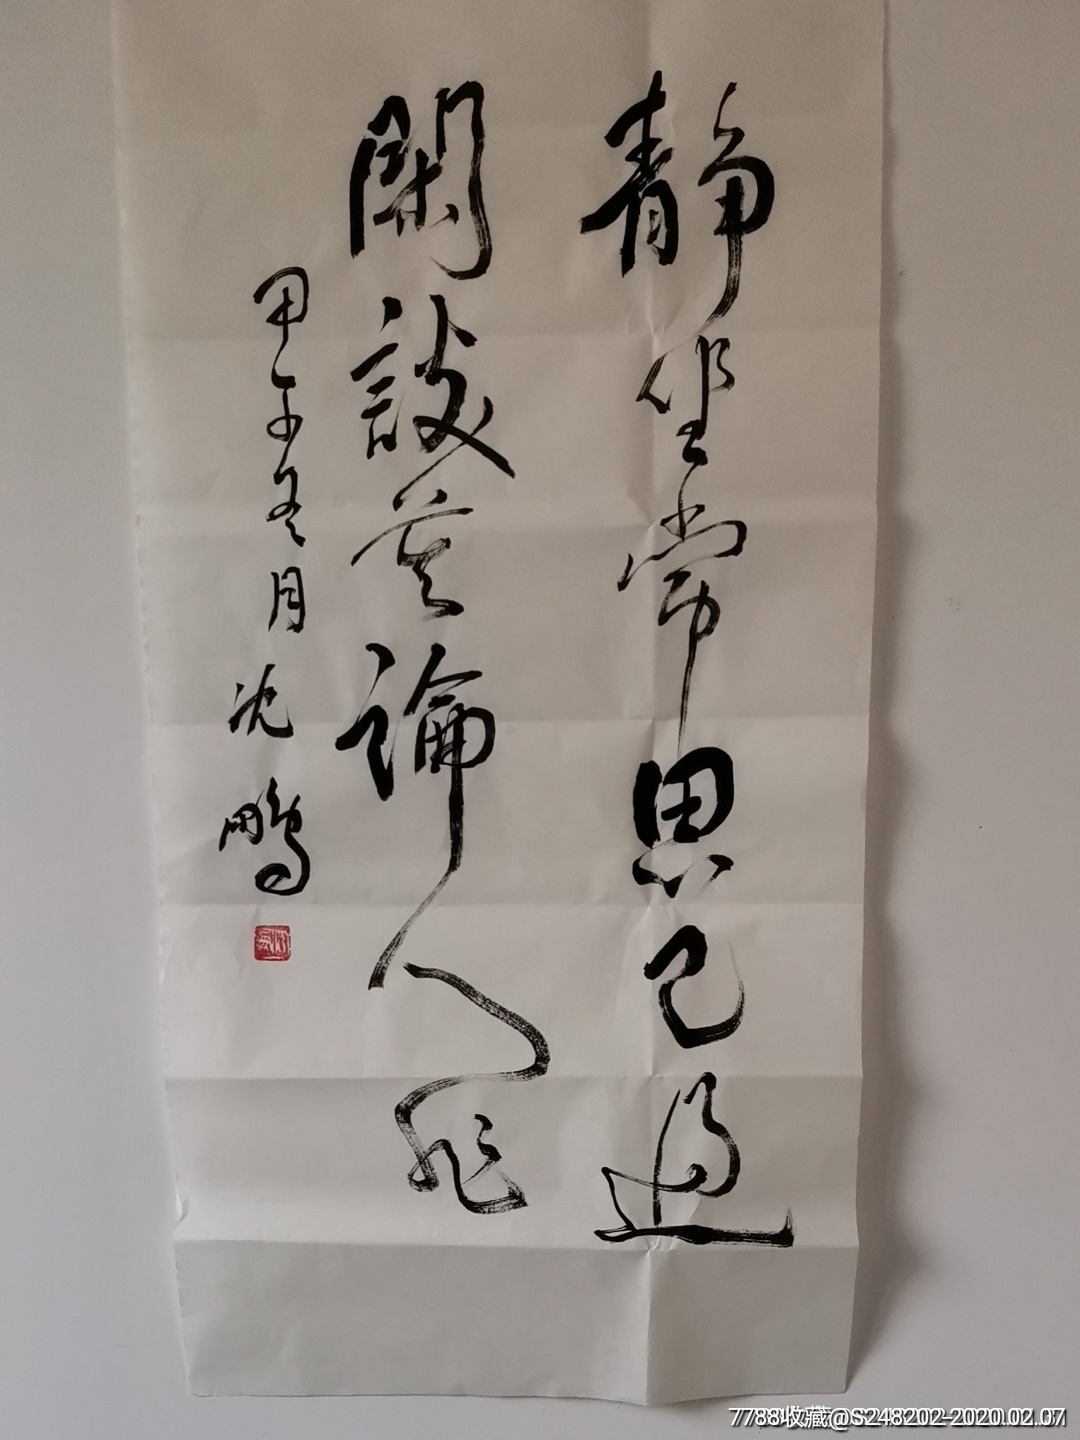 静坐常思己过
閑談莫論人非
甲午冬月 沈鹏
7788收藏@S248202-2020.02.07